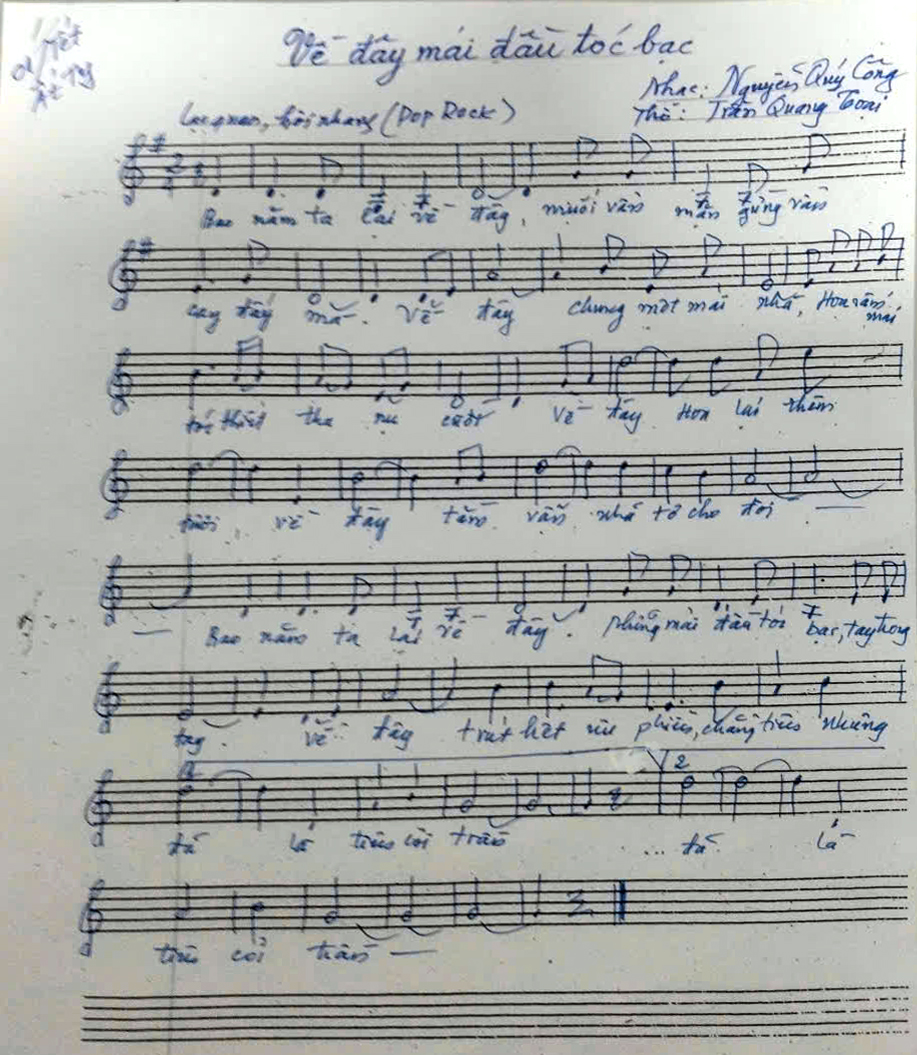 Về đây mái đầu tóc bạc
Nhạc: Nguyễn Quý Công
Thơ: Trần Quang Loại
Lạc quan, (Pop Rock)
2 4
Bao năm ta lại về đây, muối vẫn mặn gừng vẫn
cay đấy mà. Về đây chung một mái nhà, Hoa
mái
tóc ta cười Về đây Hoa lại thêm
tươi, về đây vẫn nhả tơ cho đời
Bao năm ta lại về đây. mái đầu tóc bạc, tay trong
tay. Về đây trút hết ưu phiền, chẳng tiên nhưng
2
tá là tiên cõi trần ... tá là
tiên cõi trần